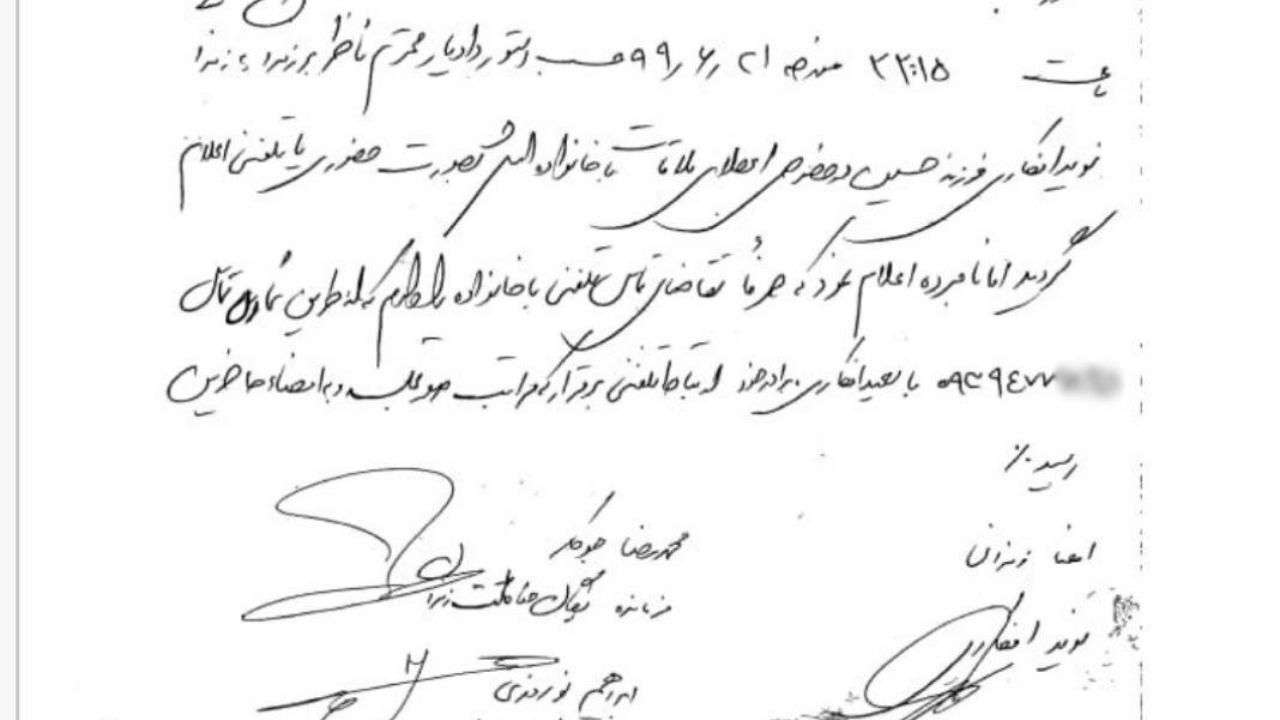 ساعت ۲۲:۱۵ مورخه ۹۹/۶/۲۱ حسب دستور دادیار محترم ناظر بر زندان به زندانی
نوید افکاری فرزند حسین در خصوص اعطای ملاقات با خانواده اش بصورت حضوری یا تلفنی اعلام
گردید اما نامبرده اعلام نمود که صرفاً تقاضای تماس تلفنی با خانواده را دارم که از طریق شماره تماس
۰۹۳۹۴۷۷ با سعید افکاری برادر خود ارتباط تلفنی برقرار که مراتب صورتجلسه و به امضاء حاضرین
رسید./
امضا زندانی
محمدرضا جوکار
فرمانده یگان حفاظت زندان
نوید افکاری
ابراهیم نوروزی